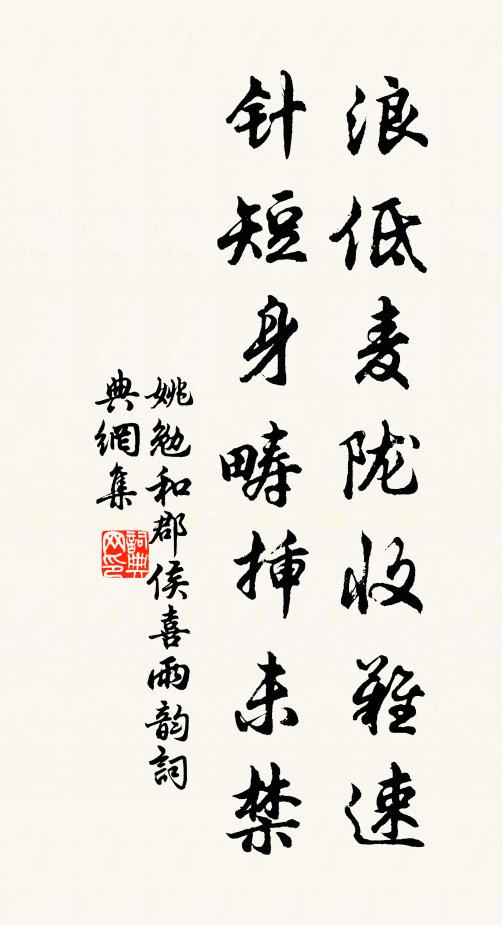 浪低麦陇收难速
针短身畴挿未禁
姚勉和郡侯喜雨韵詞
典網集
詞典
网印